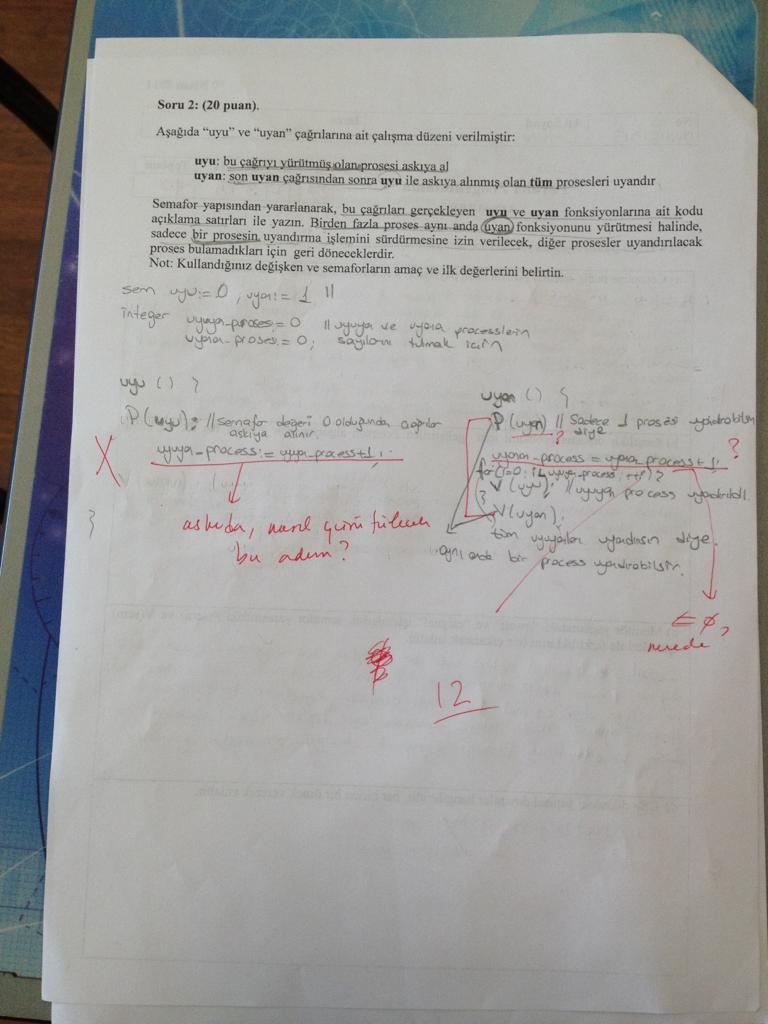 Soru 2: (20 puan).
Aşağıda "uyu" ve "uyan" çağrılarına ait çalışma düzeni verilmiştir:
uyu: bu çağrıyı yürütmüş olan prosesi askıya al
uyan: son uyan çağrısından sonra uyu ile askıya alınmış olan tüm prosesleri uyandır
Semafor yapısından yararlanarak, bu çağrıları gerçekleyen uyu ve uyan fonksiyonlarına ait kodu
açıklama satırları ile yazın. Birden fazla proses aynı anda uyan fonksiyonunu yürütmesi halinde,
sadece bir prosesin uyandırma işlemini sürdürmesine izin verilecek, diğer prosesler uyandırılacak
proses bulamadıkları için geri döneceklerdir.
Not: Kullandığınız değişken ve semaforların amaç ve ilk değerlerini belirtin.
sem uyu:=0, uyan:=1 //
integer uyuyan-proses:=0 // uyuyan ve uyanan processlerin
uyanan-proses:=0; sayılarını tutmak için
uyu () {
P(uyu); // semafor değeri 0 olduğunda çağrılar
askıya alınır.
uyuyan-process:= uyuyan-process+1;
}
askıda, nasıl yürütülecek
bu adım?
uyan () {
P(uyan) // Sadece 1 proses uyandırabilsin
diye ?
uyanan-process = uyanan-process+1; ?
for(i=0; i<uyuyan-process; i++) {
V(uyu); // uyuyan process uyandırıldı.
}
V(uyan);
tüm uyuyanlar uyandırılsın diye.
aynı anda bir process uyandırabilsin.
← ∅,
nerede
12